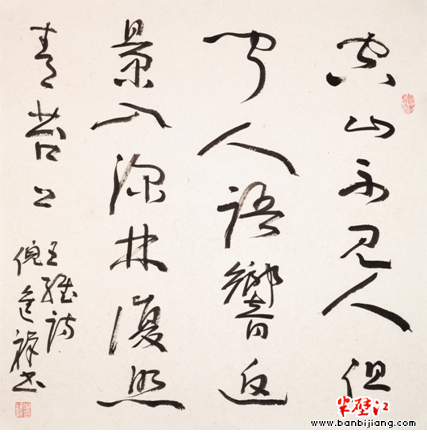 空山不见人但
闻人语響返
景入深林復照
青苔上
王维诗
倪進祥书
半壁江
www.banbijiang.com